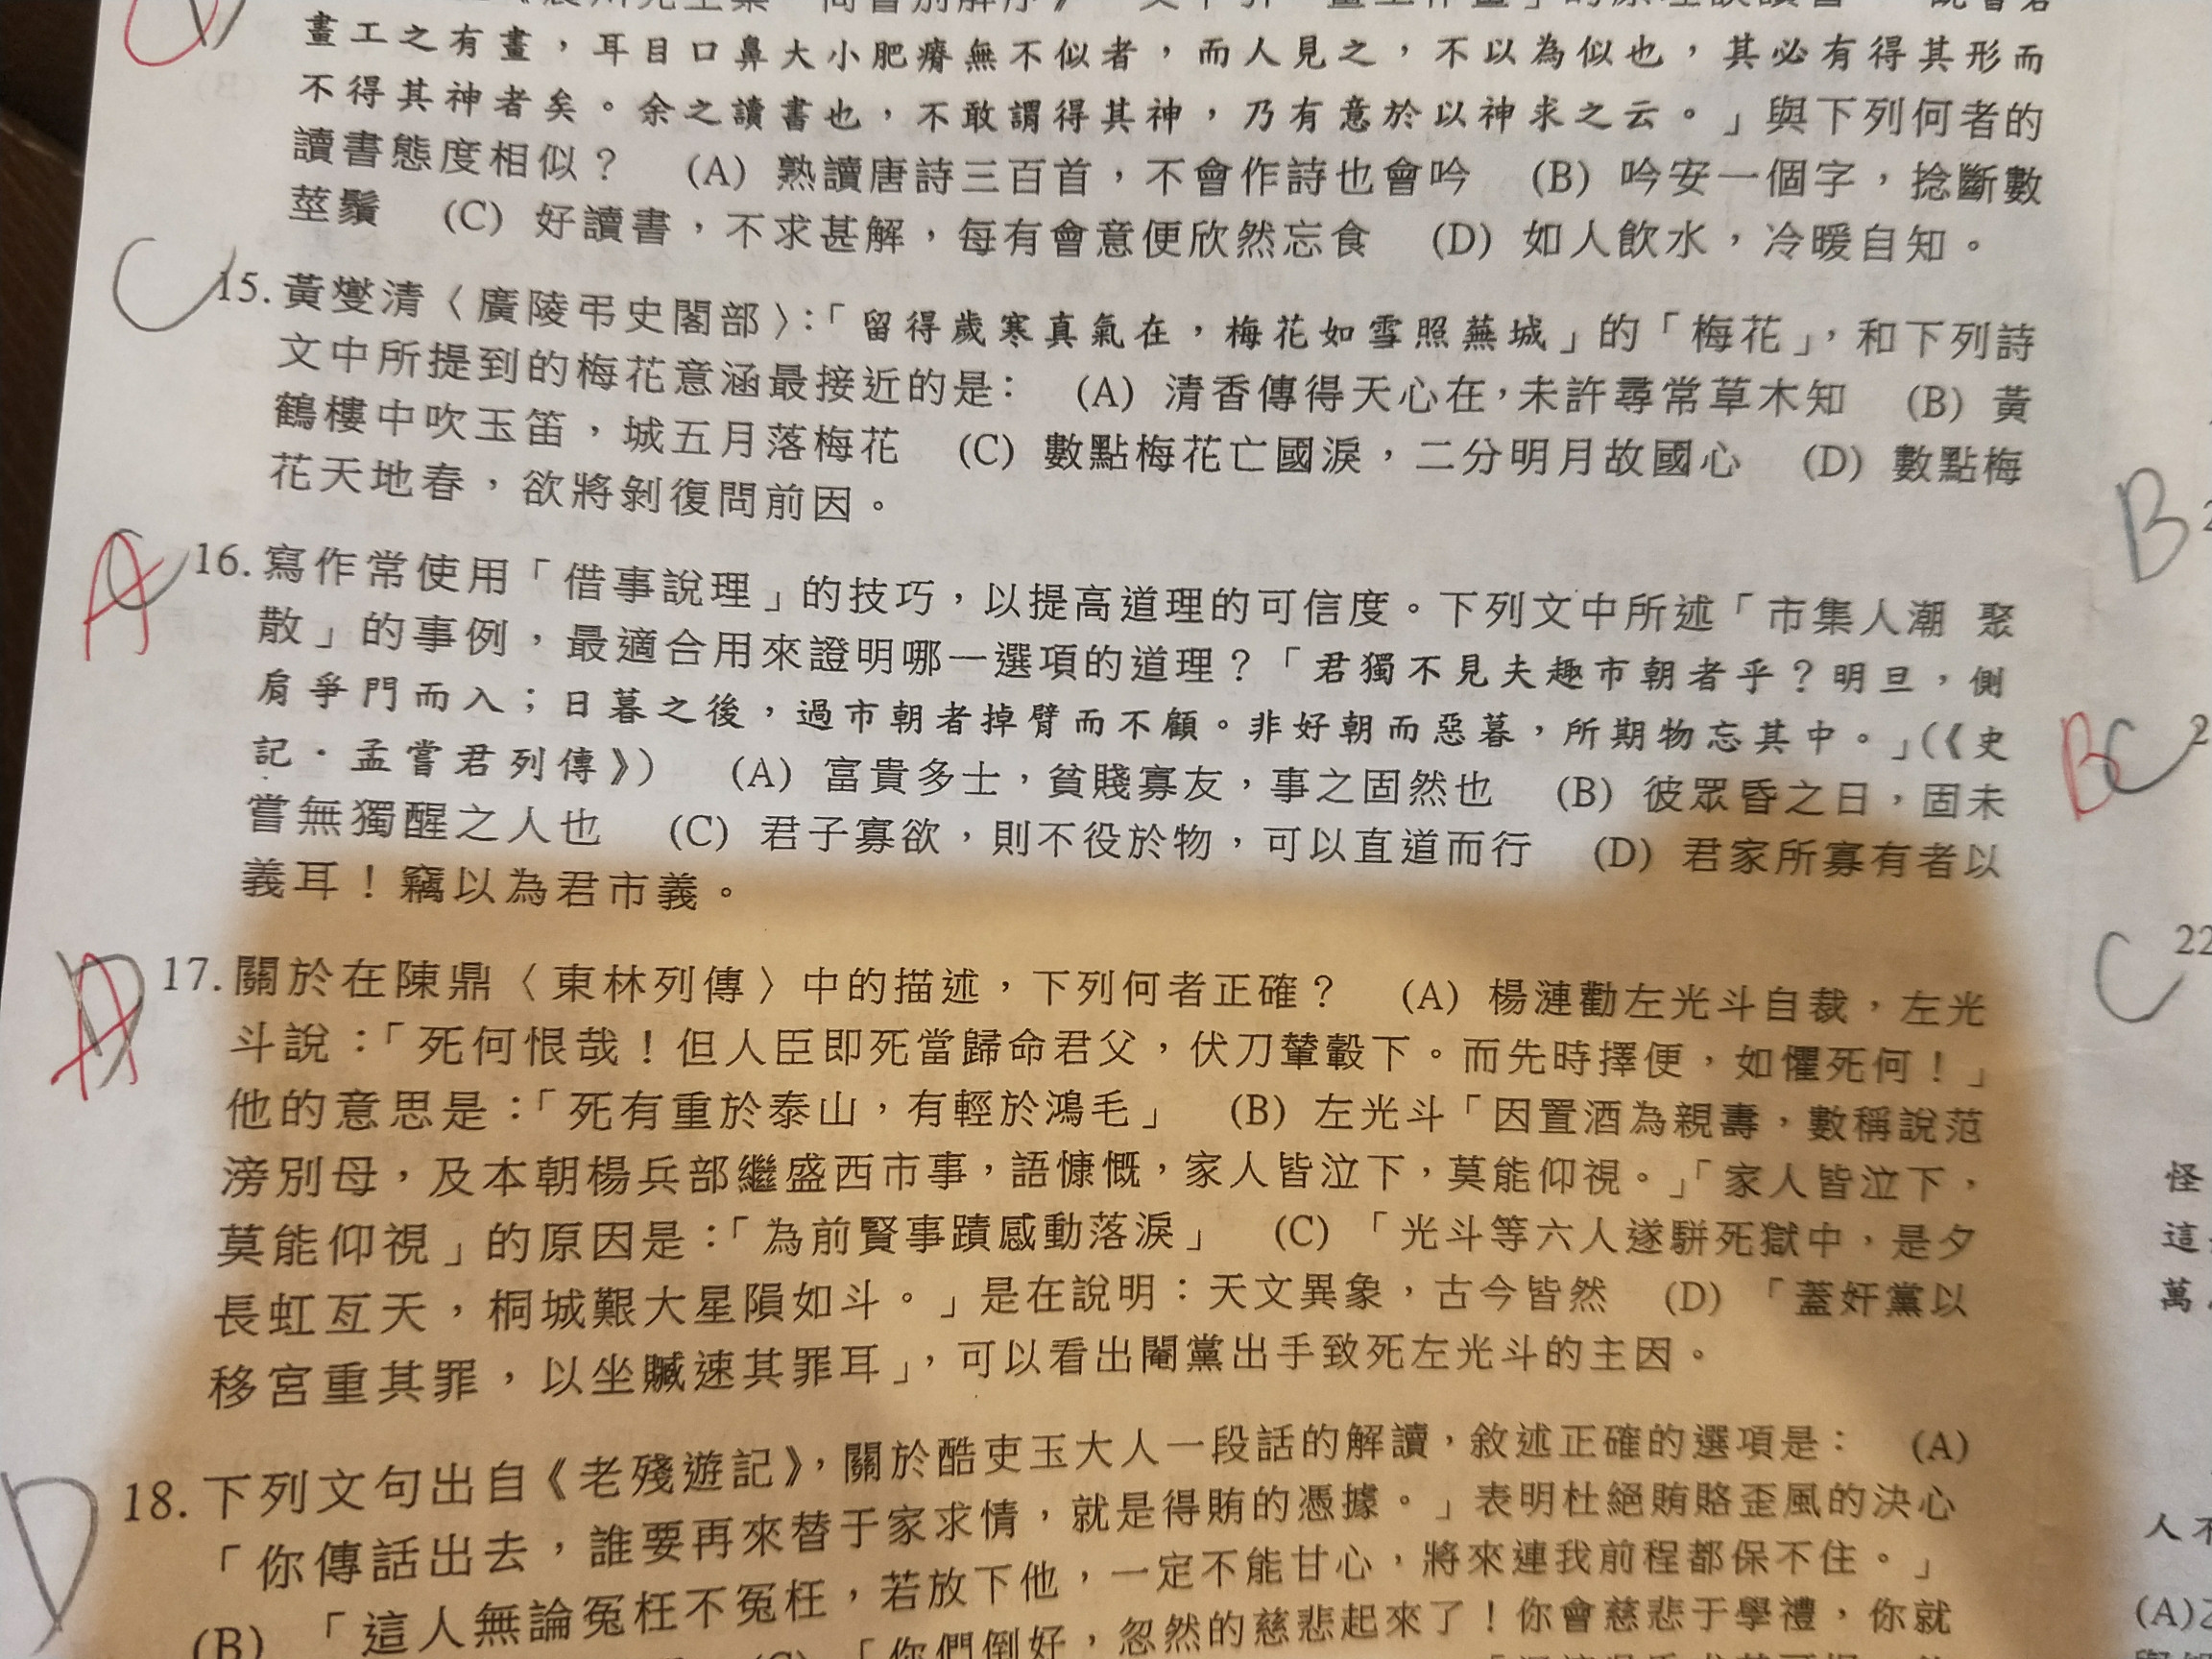 畫工之有畫，耳目口鼻大小肥瘠無不似者，而人見之，不以為似也，其必有得其形而
不得其神者矣。余之讀書也，不敢謂得其神，乃有意於以神求之云。」與下列何者的
讀書態度相似？ (A) 熟讀唐詩三百首，不會作詩也會吟 (B) 吟安一個字，捻斷數
莖鬚 (C) 好讀書，不求甚解，每有會意便欣然忘食 (D) 如人飲水，冷暖自知。
C
15. 黃燮清〈廣陵弔史閣部〉：「留得歲寒真氣在，梅花如雪照蕪城」的「梅花」，和下列詩
文中所提到的梅花意涵最接近的是： (A) 清香傳得天心在，未許尋常草木知 (B) 黃
鶴樓中吹玉笛，城五月落梅花 (C) 數點梅花亡國淚，二分明月故國心 (D) 數點梅
花天地春，欲將剝復問前因。
A
16. 寫作常使用「借事說理」的技巧，以提高道理的可信度。下列文中所述「市集人潮 聚
散」的事例，最適合用來證明哪一選項的道理？「君獨不見夫趣市朝者乎？明旦，側
肩爭門而入；日暮之後，過市朝者掉臂而不顧。非好朝而惡暮，所期物忘其中。」(《史
記・孟嘗君列傳》) (A) 富貴多士，貧賤寡友，事之固然也 (B) 彼眾昏之日，固未
嘗無獨醒之人也 (C) 君子寡欲，則不役於物，可以直道而行 (D) 君家所寡有者以
義耳！竊以為君市義。
D A
17. 關於在陳鼎〈東林列傳〉中的描述，下列何者正確？ (A) 楊漣勸左光斗自裁，左光
斗說：「死何恨哉！但人臣即死當歸命君父，伏刀輦轂下。而先時擇便，如懼死何！」
他的意思是：「死有重於泰山，有輕於鴻毛」 (B) 左光斗「因置酒為親壽，數稱說范
滂別母，及本朝楊兵部繼盛西市事，語慷慨，家人皆泣下，莫能仰視。」「家人皆泣下，
莫能仰視」的原因是：「為前賢事蹟感動落淚」 (C) 「光斗等六人遂駢死獄中，是夕
長虹亙天，桐城艱大星隕如斗。」是在說明：天文異象，古今皆然 (D) 「蓋奸黨以
移宮重其罪，以坐贓速其罪耳」，可以看出閹黨出手致死左光斗的主因。
D
18. 下列文句出自《老殘遊記》，關於酷吏玉大人一段話的解讀，敘述正確的選項是： (A)
「你傳話出去，誰要再來替于家求情，就是得賄的憑據。」表明杜絕賄賂歪風的決心
(B) 「這人無論冤枉不冤枉，若放下他，一定不能甘心，將來連我前程都保不住。」
「你們倒好，忽然的慈悲起來了！你會慈悲于學禮，你就
B
B C
C 22
怪
這
萬
人不
(A)